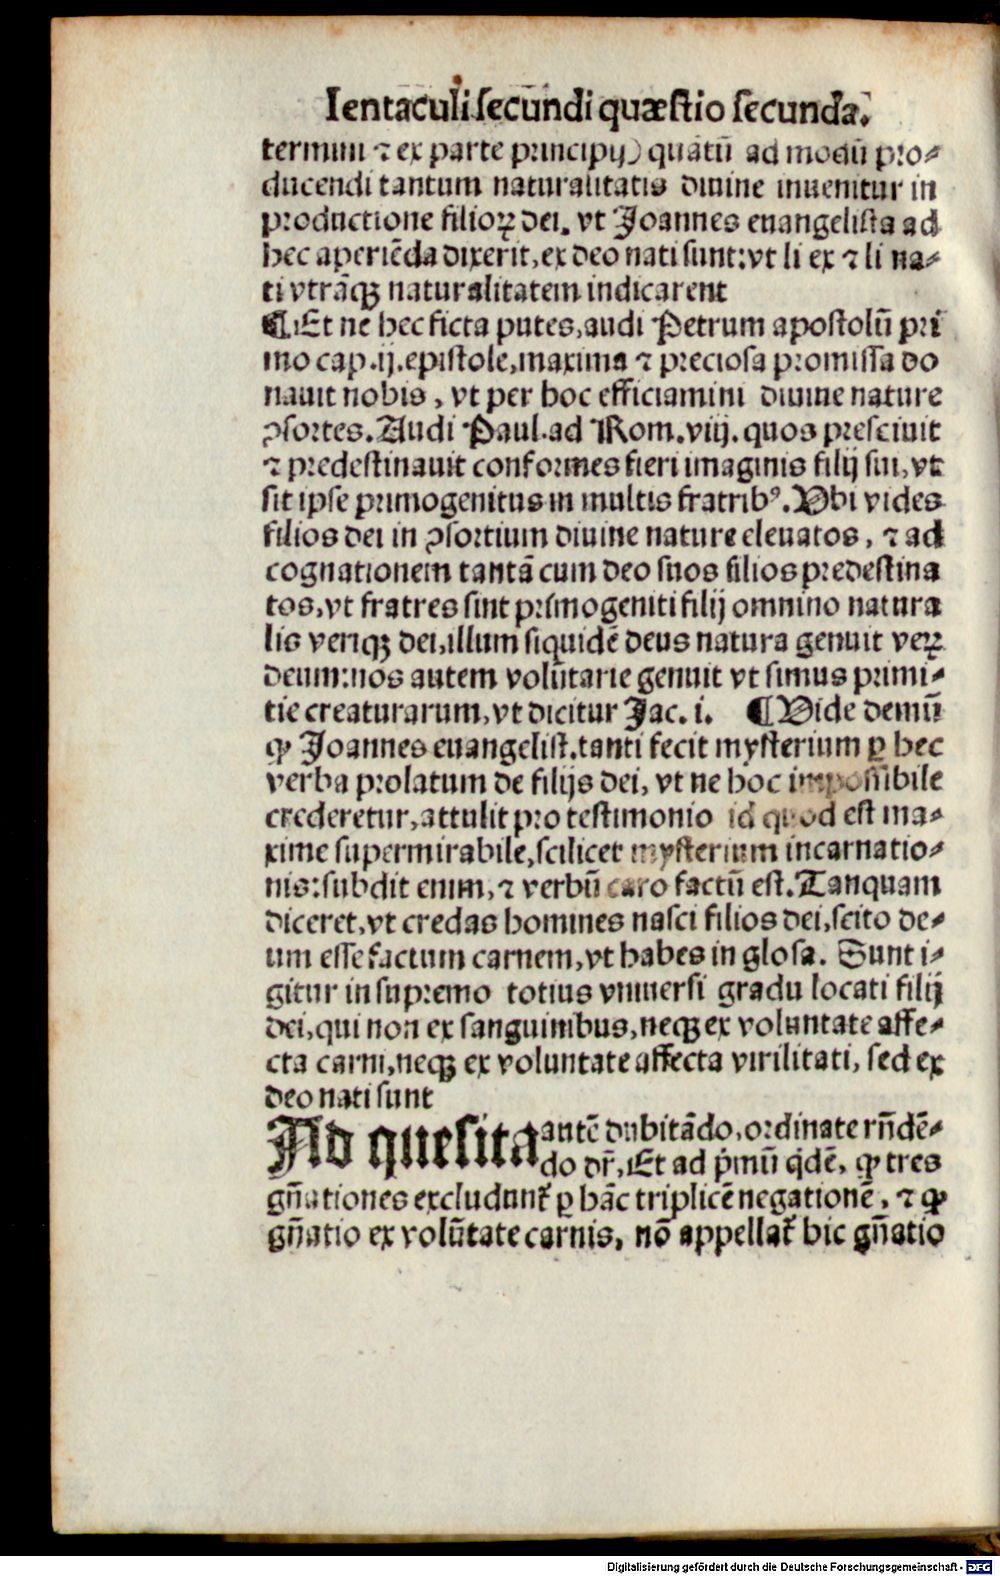 Ientaculi secundi quæstio secunda.
termini ⁊ ex parte principij) quātū ad modū pro⸗
ducendi tantum naturalitatis diuine inuenitur in
productione filioꝝ dei. vt Joannes euangelista ad
hec aperiēda dixerit, ex deo nati sunt: vt li ex ⁊ li na⸗
ti vtrāqꝫ naturalitatem indicarent
¶ Et ne hec ficta putes, audi Petrum apostolū pri
mo cap. ij. epistole, maxima ⁊ preciosa promissa do
nauit nobis, vt per hoc efficiamini diuine nature
ꝯsortes. Audi Paul. ad Rom. viij. quos presciuit
⁊ predestinauit conformes fieri imaginis filij sui, vt
sit ipse primogenitus in multis fratribꝰ. Vbi vides
filios dei in ꝯsortium diuine nature eleuatos, ⁊ ad
cognationem tantā cum deo suos filios predestina
tos, vt fratres sint primogeniti filij omnino natura
lis veriqꝫ dei, illum siquidē deus natura genuit veꝝ
deum: nos autem volūtarie genuit vt simus primi⸗
tie creaturarum, vt dicitur Jac. i. ¶ Vide demū
ꝙ Joannes euangelist. tanti fecit mysterium ꝑ hec
verba prolatum de filijs dei, vt ne hoc impossibile
crederetur, attulit pro testimonio id quod est ma⸗
xime supermirabile, scilicet mysterium incarnatio⸗
nis: subdit enim, ⁊ verbū caro factū est. Tanquam
diceret, vt credas homines nasci filios dei, scito de⸗
um esse factum carnem, vt habes in glosa. Sunt i⸗
gitur in supremo totius vniuersi gradu locati filij
dei, qui non ex sanguinibus, neqꝫ ex voluntate affe⸗
cta carni, neqꝫ ex voluntate affecta virilitati, sed ex
deo nati sunt
Ad quesita antē dubitādo, ordinate rn̄dē⸗
do dr̄, Et ad p̄mū qdē, ꝙ tres
gn̄ationes excludunt᷑ ꝑ hāc triplicē negationē, ⁊ ꝙ
gn̄atio ex volūtate carnis, nō appellat᷑ hic gn̄atio
Digitalisierung gefördert durch die Deutsche Forschungsgemeinschaft - DFG